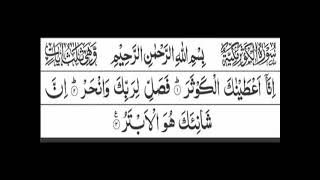 سُوْرَةُ الْكَوْثَرِ مَكِّيَّةٌ بِسْمِ اللّٰهِ الرَّحْمٰنِ الرَّحِيْمِ وَهِيَ ثَلٰثُ اٰيَاتٍ
اِنَّاۤ اَعْطَيْنٰكَ الْكَوْثَرَ ۝ فَصَلِّ لِرَبِّكَ وَانْحَرْ ۝ اِنَّ
شَانِئَكَ هُوَ الْاَبْتَرُ ۝